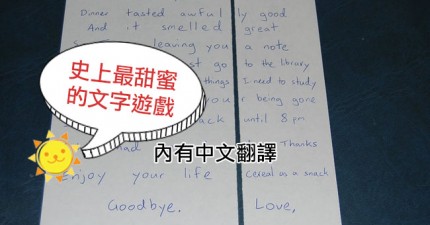 Dinner tasted awfully good
And it smelled great
leaving you a note
go to the library
things I need to study
being gone
until 8 pm
Thanks
Enjoy your life Cereal as a snack
Goodbye. Love,
史上最甜蜜
的文字遊戲
內有中文翻譯